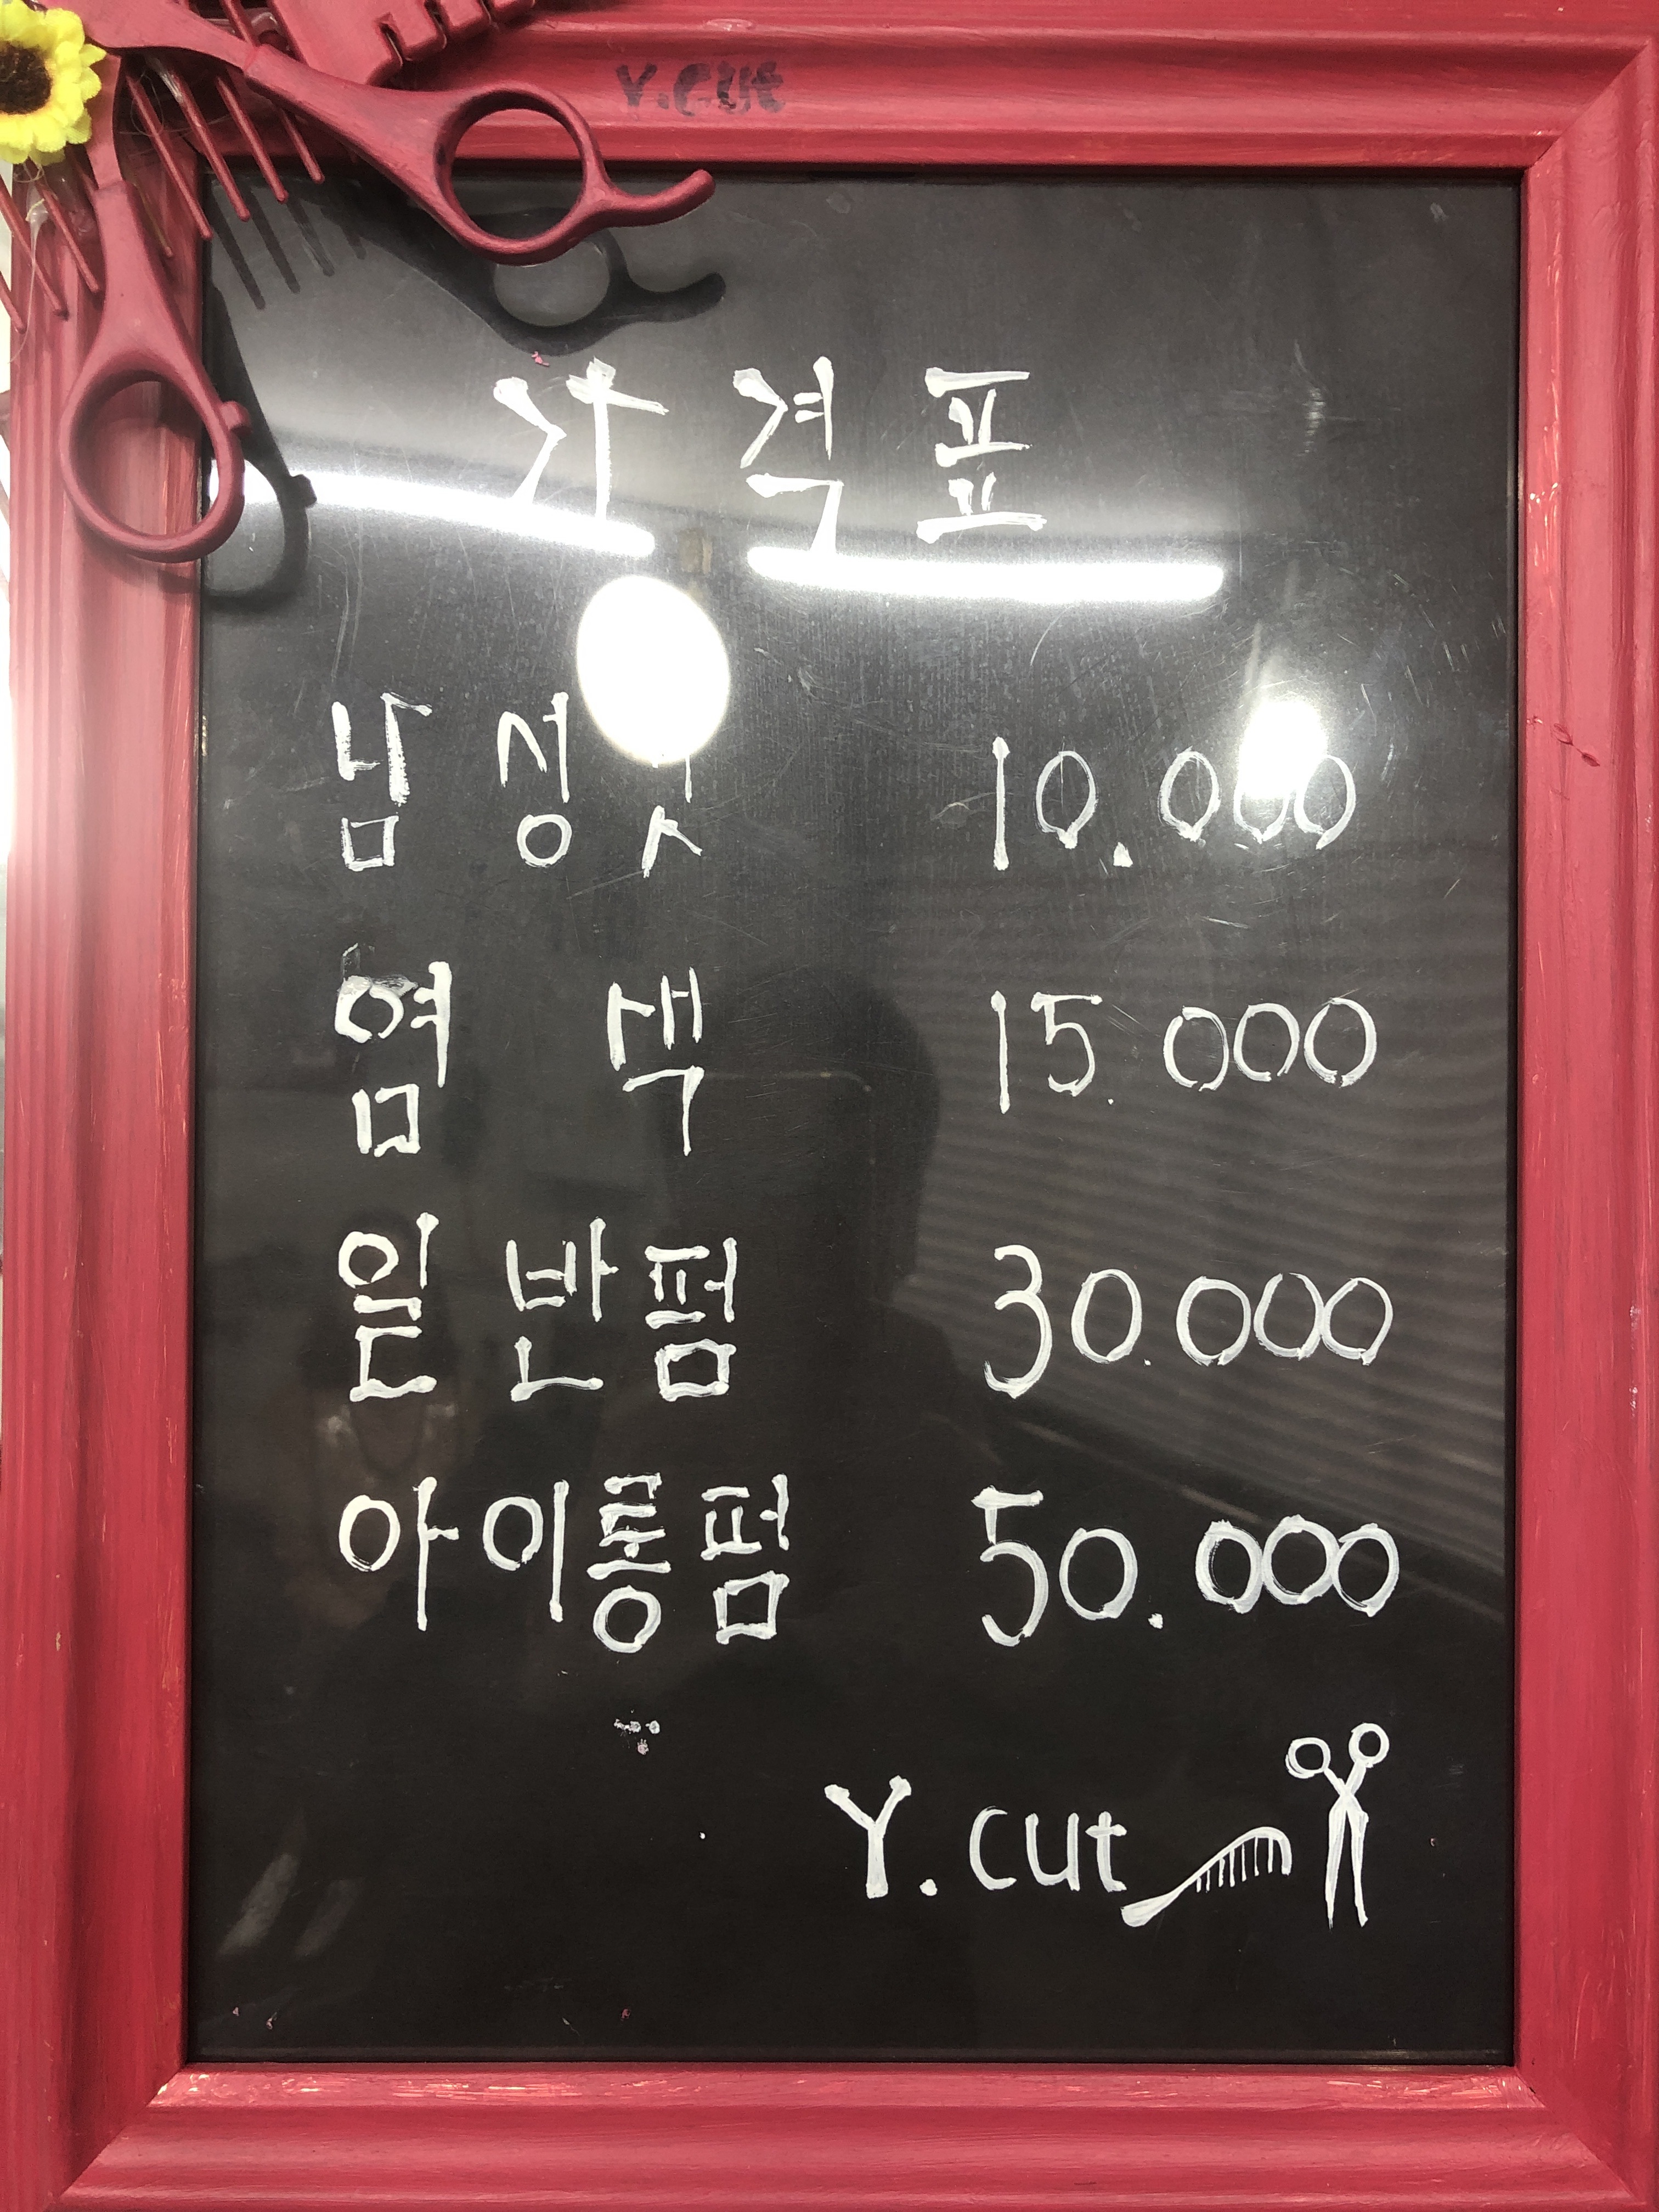 Y.cut
가격표
남성컷 10.000
염색 15.000
일반펌 30.000
아이롱펌 50.000
Y.cut